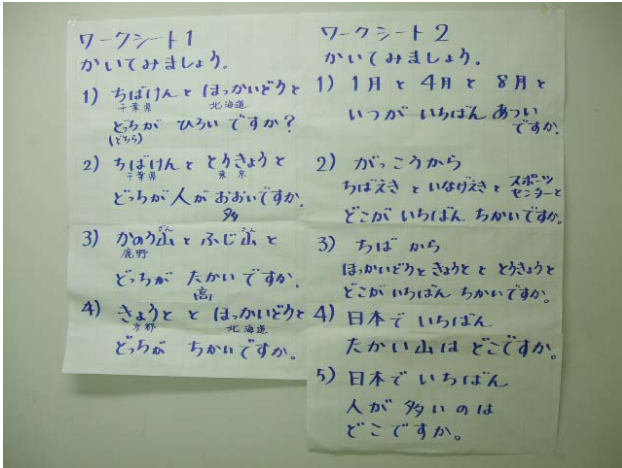 ワークシート1
かいてみましょう.
1) ちばけんと ほっかいどうと
千葉県 北海道
どっちが ひろいですか?
(どちら)
2) ちばけんと とうきょうと
千葉県 東京
どっちが人が おおいですか.
多
3) かのう山と ふじ山と
さん さん
鹿野
どっちが たかいですか.
高
4) きょうと と ほっかいどうと
京都 北海道
どっちが ちかいですか。
ワークシート2
かいてみましょう.
1) 1月 と 4月 と 8月 と
いつが いちばん あつい
ですか.
2) がっこうから
ちばえきと いなげえきと スポーツ
センターと
どこが いちばん ちかいですか.
3) ちば から
ほっかいどうと きょうと と とうきょうと
どこが いちばん ちかいですか。
4) 日本で いちばん
たかい山は どこですか。
5) 日本で いちばん
人が 多いのは
どこですか。